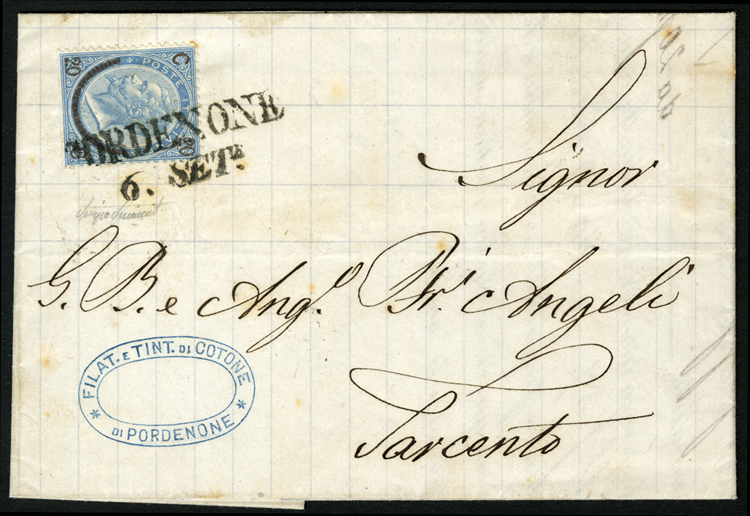 C
20
POSTE
20
PORDENONE
6. SETE.
Signor
G. B. e Ang.o Fr.i Angeli
Tarcento
FILAT. E TINT. DI COTONE
DI PORDENONE